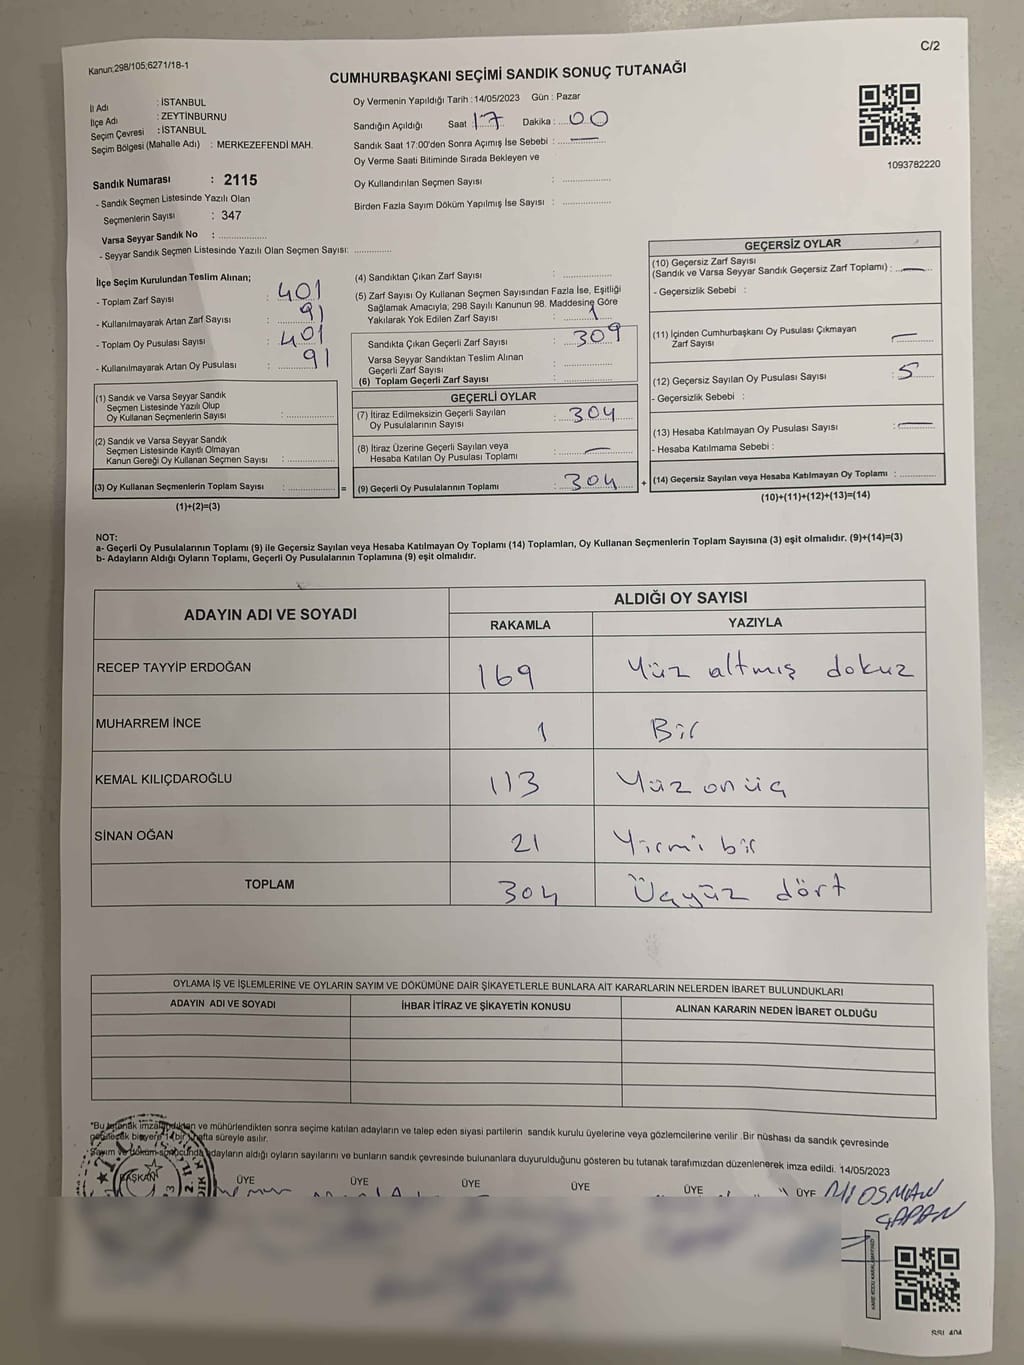 Kanun;298/105;6271/18-1
C/2
CUMHURBAŞKANI SEÇİMİ SANDIK SONUÇ TUTANAĞI
İl Adı : İSTANBUL
İlçe Adı : ZEYTİNBURNU
Seçim Çevresi : İSTANBUL
Seçim Bölgesi (Mahalle Adı) : MERKEZEFENDİ MAH.
Sandık Numarası : 2115
- Sandık Seçmen Listesinde Yazılı Olan
Seçmenlerin Sayısı : 347
Varsa Seyyar Sandık No : ..................
- Seyyar Sandık Seçmen Listesinde Yazılı Olan Seçmen Sayısı: ..............
Oy Vermenin Yapıldığı Tarih : 14/05/2023 Gün : Pazar
Sandığın Açıldığı Saat : 17 Dakika : 00
Sandık Saat 17:00'den Sonra Açımış İse Sebebi : —
Oy Verme Saati Bitiminde Sırada Bekleyen ve
Oy Kullandırılan Seçmen Sayısı : ..................
Birden Fazla Sayım Döküm Yapılmış İse Sayısı : ..................
1093782220
İlçe Seçim Kurulundan Teslim Alınan;
- Toplam Zarf Sayısı : 401
- Kullanılmayarak Artan Zarf Sayısı : 91
- Toplam Oy Pusulası Sayısı : 401
- Kullanılmayarak Artan Oy Pusulası : 91
(1) Sandık ve Varsa Seyyar Sandık
Seçmen Listesinde Yazılı Olup
Oy Kullanan Seçmenlerin Sayısı : ..............
(2) Sandık ve Varsa Seyyar Sandık
Seçmen Listesinde Kayıtlı Olmayan
Kanun Gereği Oy Kullanan Seçmen Sayısı : ..............
(3) Oy Kullanan Seçmenlerin Toplam Sayısı : .............. =
(1)+(2)=(3)
(4) Sandıktan Çıkan Zarf Sayısı : ..............
(5) Zarf Sayısı Oy Kullanan Seçmen Sayısından Fazla İse, Eşitliği
Sağlamak Amacıyla, 298 Sayılı Kanunun 98. Maddesine Göre
Yakılarak Yok Edilen Zarf Sayısı : 1
Sandıkta Çıkan Geçerli Zarf Sayısı : 309
Varsa Seyyar Sandıktan Teslim Alınan
Geçerli Zarf Sayısı : ..............
(6) Toplam Geçerli Zarf Sayısı : ..............
GEÇERLİ OYLAR
(7) İtiraz Edilmeksizin Geçerli Sayılan
Oy Pusulalarının Sayısı : 304
(8) İtiraz Üzerine Geçerli Sayılan veya
Hesaba Katılan Oy Pusulası Toplamı : —
(9) Geçerli Oy Pusulalarının Toplamı : 304 +
GEÇERSİZ OYLAR
(10) Geçersiz Zarf Sayısı
(Sandık ve Varsa Seyyar Sandık Geçersiz Zarf Toplamı) : —
- Geçersizlik Sebebi :
(11) İçinden Cumhurbaşkanı Oy Pusulası Çıkmayan
Zarf Sayısı : —
(12) Geçersiz Sayılan Oy Pusulası Sayısı : 5
- Geçersizlik Sebebi :
(13) Hesaba Katılmayan Oy Pusulası Sayısı : —
- Hesaba Katılmama Sebebi :
(14) Geçersiz Sayılan veya Hesaba Katılmayan Oy Toplamı : ..............
(10)+(11)+(12)+(13)=(14)
NOT:
a- Geçerli Oy Pusulalarının Toplamı (9) ile Geçersiz Sayılan veya Hesaba Katılmayan Oy Toplamı (14) Toplamları, Oy Kullanan Seçmenlerin Toplam Sayısına (3) eşit olmalıdır. (9)+(14)=(3)
b- Adayların Aldığı Oyların Toplamı, Geçerli Oy Pusulalarının Toplamına (9) eşit olmalıdır.
ADAYIN ADI VE SOYADI
ALDIĞI OY SAYISI
RAKAMLA YAZIYLA
RECEP TAYYİP ERDOĞAN 169 Yüz altmış dokuz
MUHARREM İNCE 1 Bir
KEMAL KILIÇDAROĞLU 113 Yüz onüç
SİNAN OĞAN 21 Yirmi bir
TOPLAM 304 Üçyüz dört
OYLAMA İŞ VE İŞLEMLERİNE VE OYLARIN SAYIM VE DÖKÜMÜNE DAİR ŞİKAYETLERLE BUNLARA AİT KARARLARIN NELERDEN İBARET BULUNDUKLARI
ADAYIN ADI VE SOYADI İHBAR İTİRAZ VE ŞİKAYETİN KONUSU ALINAN KARARIN NEDEN İBARET OLDUĞU
*Bu tutanak imzalandıktan ve mühürlendikten sonra seçime katılan adayların ve talep eden siyasi partilerin sandık kurulu üyelerine veya gözlemcilerine verilir .Bir nüshası da sandık çevresinde
görülecek bir yere 1 bir hafta süreyle asılır.
Sayım ve döküm sonucunda adayların aldığı oyların sayılarını ve bunların sandık çevresinde bulunanlara duyurulduğunu gösteren bu tutanak tarafımızdan düzenlenerek imza edildi. 14/05/2023
BAŞKAN ÜYE ÜYE ÜYE ÜYE ÜYE ÜYE
OSMAN